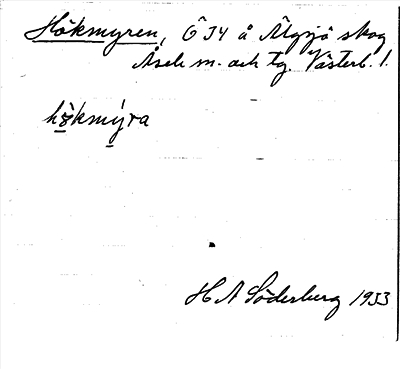 Hökmyren, Ö I4 å Älgsjö skog
Åsele sn. och tg. Västerb. l.
hökmýra
H A Söderberg 1933